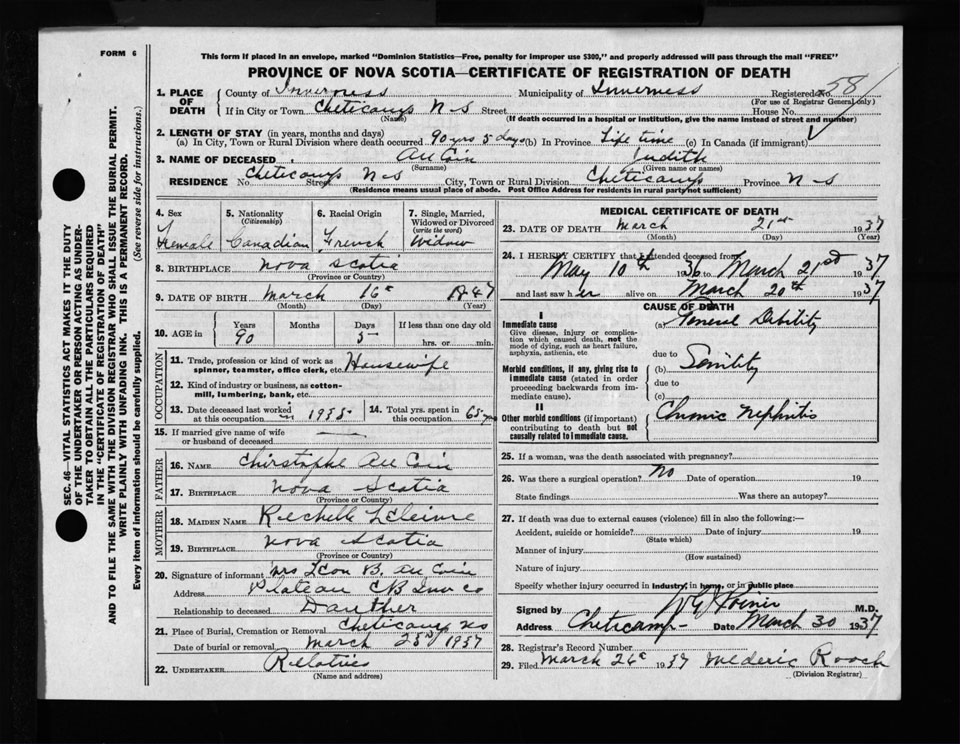 FORM 6
This form if placed in an envelope, marked "Dominion Statistics—Free, penalty for improper use $300," and properly addressed will pass through the mail "FREE"
PROVINCE OF NOVA SCOTIA—CERTIFICATE OF REGISTRATION OF DEATH
SEC. 46—VITAL STATISTICS ACT MAKES IT THE DUTY
OF THE UNDERTAKER OR PERSON ACTING AS UNDER-
TAKER TO OBTAIN ALL THE PARTICULARS REQUIRED
IN THE "CERTIFICATE OF REGISTRATION OF DEATH"
AND TO FILE THE SAME WITH THE DIVISION REGISTRAR WHO SHALL ISSUE THE BURIAL PERMIT.
WRITE PLAINLY WITH UNFADING INK. THIS IS A PERMANENT RECORD.
Every item of information should be carefully supplied. (See reverse side for instructions.)
1. PLACE OF DEATH County of Inverness Municipality of Inverness Registered No. 581
(For use of Registrar General only)
If in City or Town Cheticamp N-S Street House No.
(Name) (If death occurred in a hospital or institution, give the name instead of street and number)
2. LENGTH OF STAY (in years, months and days)
(a) In City, Town or Rural Division where death occurred 90 yrs 5 days (b) In Province Life time (c) In Canada (if immigrant)
3. NAME OF DECEASED Au Coin Judith
(Surname) (Given name or names)
RESIDENCE No. Cheticamp N-S Street City, Town or Rural Division Cheticamp Province N-S
(Residence means usual place of abode. Post Office Address for residents in rural party not sufficient)
4. Sex Female
5. Nationality (Citizenship) Canadian
6. Racial Origin French
7. Single, Married, Widowed or Divorced (write the word) Widow
8. BIRTHPLACE Nova Scotia
(Province or Country)
9. DATE OF BIRTH March 16 1847
(Month) (Day) (Year)
10. AGE in Years 90 Months Days 5 If less than one day old hrs. or min.
OCCUPATION
11. Trade, profession or kind of work as spinner, teamster, office clerk, etc. Housewife
12. Kind of industry or business, as cotton-mill, lumbering, bank, etc.
13. Date deceased last worked at this occupation in 1935
14. Total yrs. spent in this occupation 65 yrs
15. If married give name of wife or husband of deceased
FATHER
16. NAME Chirstophe Au Coin
17. BIRTHPLACE Nova Scotia
(Province or Country)
MOTHER
18. MAIDEN NAME
19. BIRTHPLACE Nova Scotia
(Province or Country)
20. Signature of informant Mrs Leon B. Au Coin
Address Plateau CB Inv co
Relationship to deceased Dauther
21. Place of Burial, Cremation or Removal Cheticamp NS
Date of burial or removal March 23rd 1937
22. UNDERTAKER Relatives
(Name and address)
MEDICAL CERTIFICATE OF DEATH
23. DATE OF DEATH March 21st 1937
(Month) (Day) (Year)
24. I HEREBY CERTIFY that I attended deceased from
May 10th 1936 to March 21st 1937
and last saw her alive on March 20th 1937
CAUSE OF DEATH
I
Immediate cause
Give disease, injury or complication which caused death, not the mode of dying, such as heart failure, asphyxia, asthenia, etc
(a) General Debility
due to
Morbid conditions, if any, giving rise to immediate cause (stated in order proceeding backwards from immediate cause).
(b) Senility
due to
(c)
II
Other morbid conditions (if important) contributing to death but not causally related to immediate cause.
Chronic Nephritis
25. If a woman, was the death associated with pregnancy?
26. Was there a surgical operation? No Date of operation 19
State findings Was there an autopsy?
27. If death was due to external causes (violence) fill in also the following:—
Accident, suicide or homicide? Date of injury 19
(State which)
Manner of injury
(How sustained)
Nature of injury
Specify whether injury occurred in industry, in home, or in public place
Signed by M.D.
Address Cheticamp- Date March 30 1937
28. Registrar's Record Number
29. Filed March 26 1937 Mederic Roach
(Division Registrar)